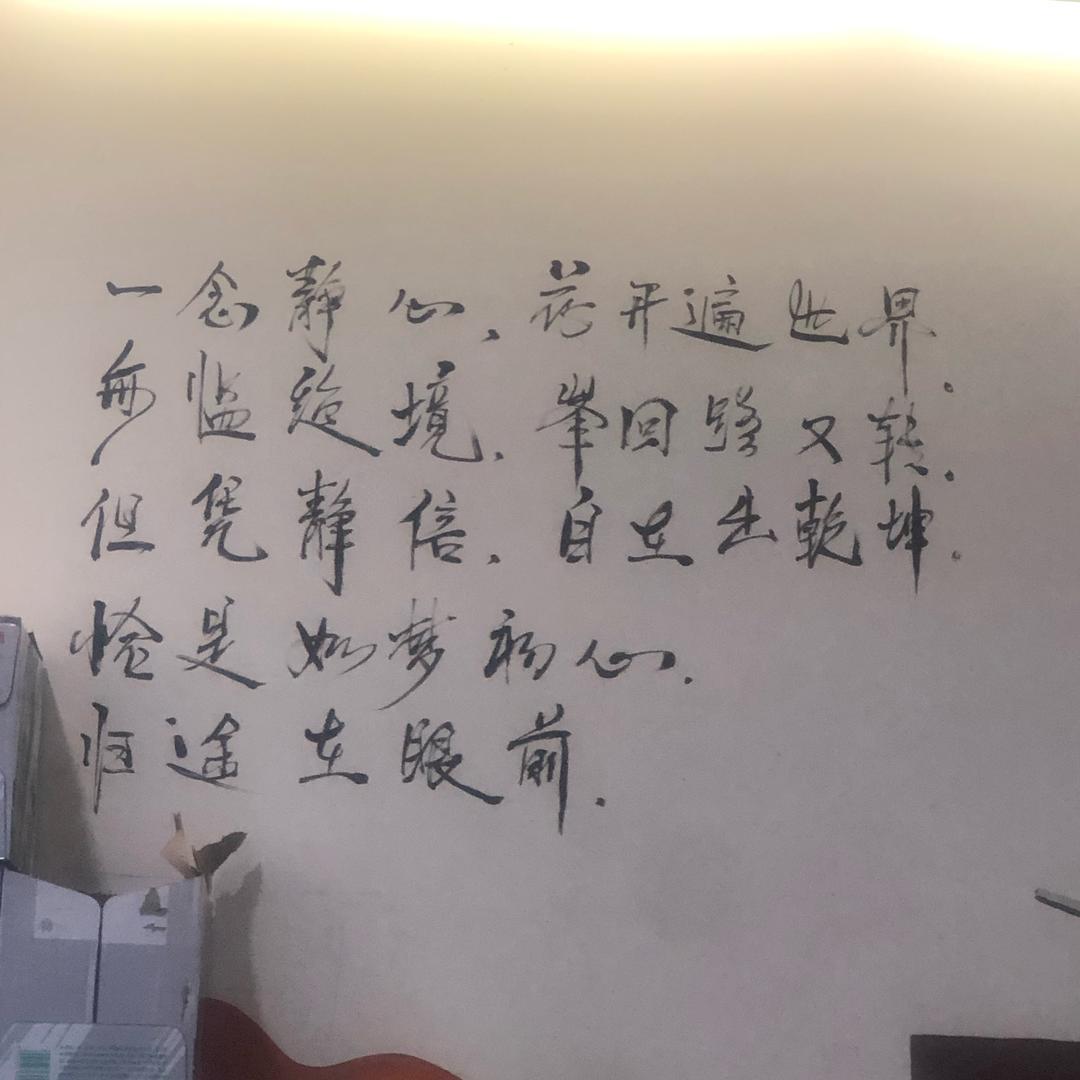 一念静心、花开遍世界。
每临绝境、峰回路又转。
但凭静信、自在出乾坤。
恰是如梦初心、
归途在眼前。